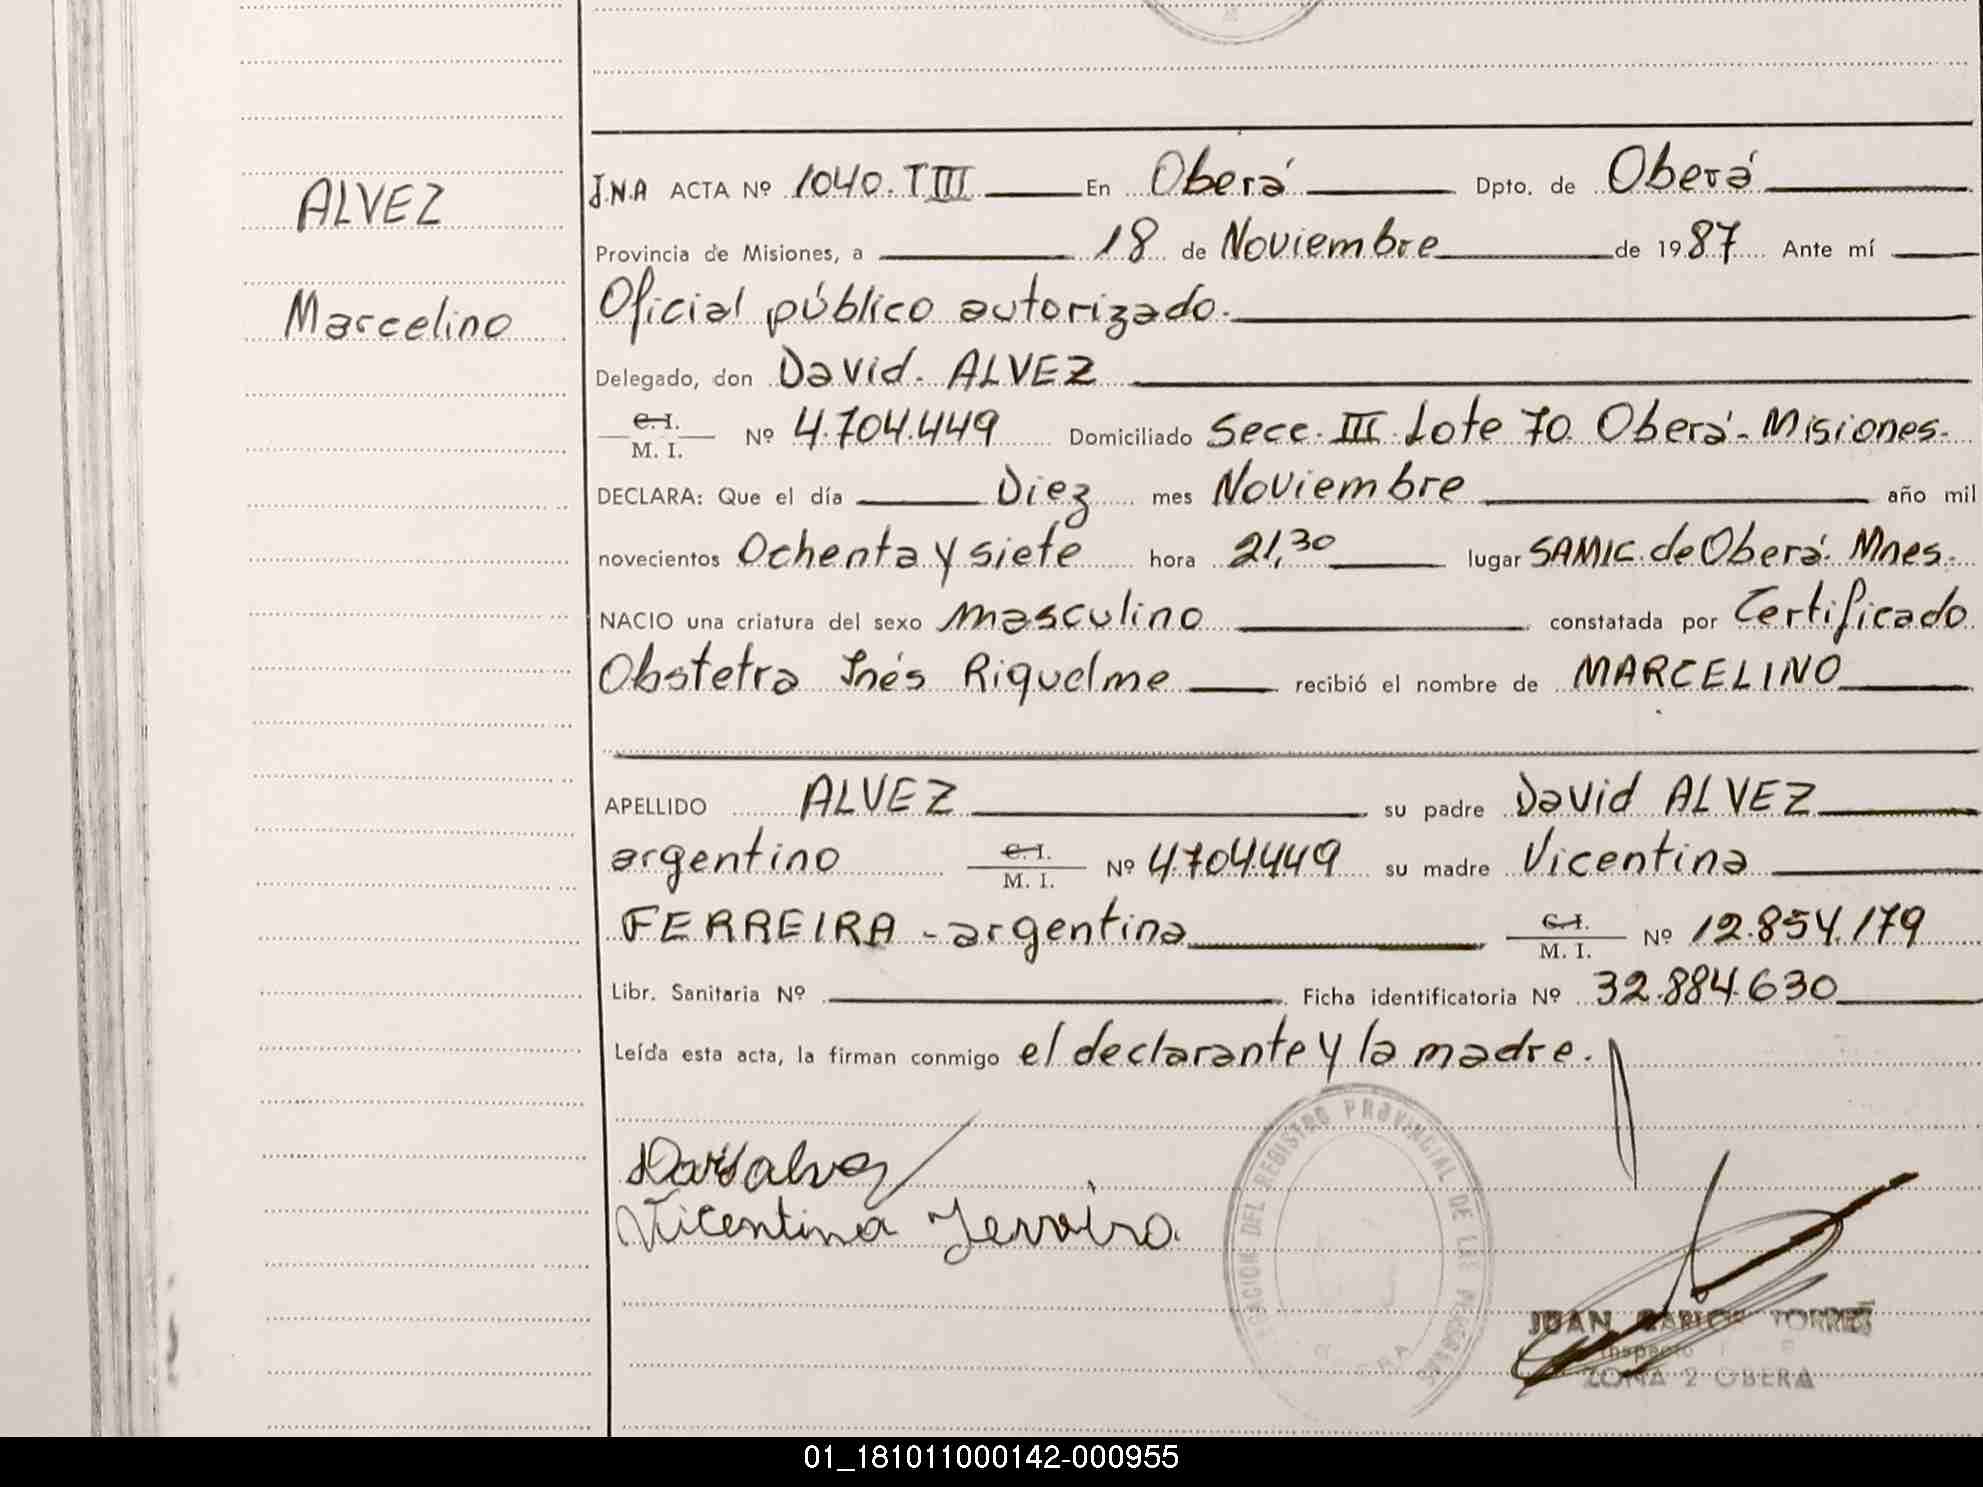 ALVEZ
Marcelino
J.N.A ACTA Nº 1040. T III En Oberá Dpto. de Oberá
Provincia de Misiones, a 18 de Noviembre de 1987 Ante mí
Oficial público autorizado.
Delegado, don David. ALVEZ
C.I. / M. I. Nº 4.704.449 Domiciliado Secc. III. Lote 70. Oberá - Misiones.
DECLARA: Que el día Diez mes Noviembre año mil
novecientos Ochenta y siete hora 21,30 lugar SAMIC. de Oberá. Mnes.
NACIO una criatura del sexo masculino constatada por Certificado
Obstetra Inés Riquelme recibió el nombre de MARCELINO
APELLIDO ALVEZ su padre David ALVEZ
argentino C.I. / M. I. Nº 4.704.449 su madre Vicentina
FERREIRA - argentina C.I. / M. I. Nº 12.854.179
Libr. Sanitaria Nº Ficha identificatoria Nº 32.884.630
Leída esta acta, la firman conmigo el declarante y la madre.
DEL REGISTRO PROVINCIAL DE LAS PERSONAS
Vicentina Ferreira
JUAN CARLOS TORRES
Inspector
ZONA 2 OBERA
01_181011000142-000955